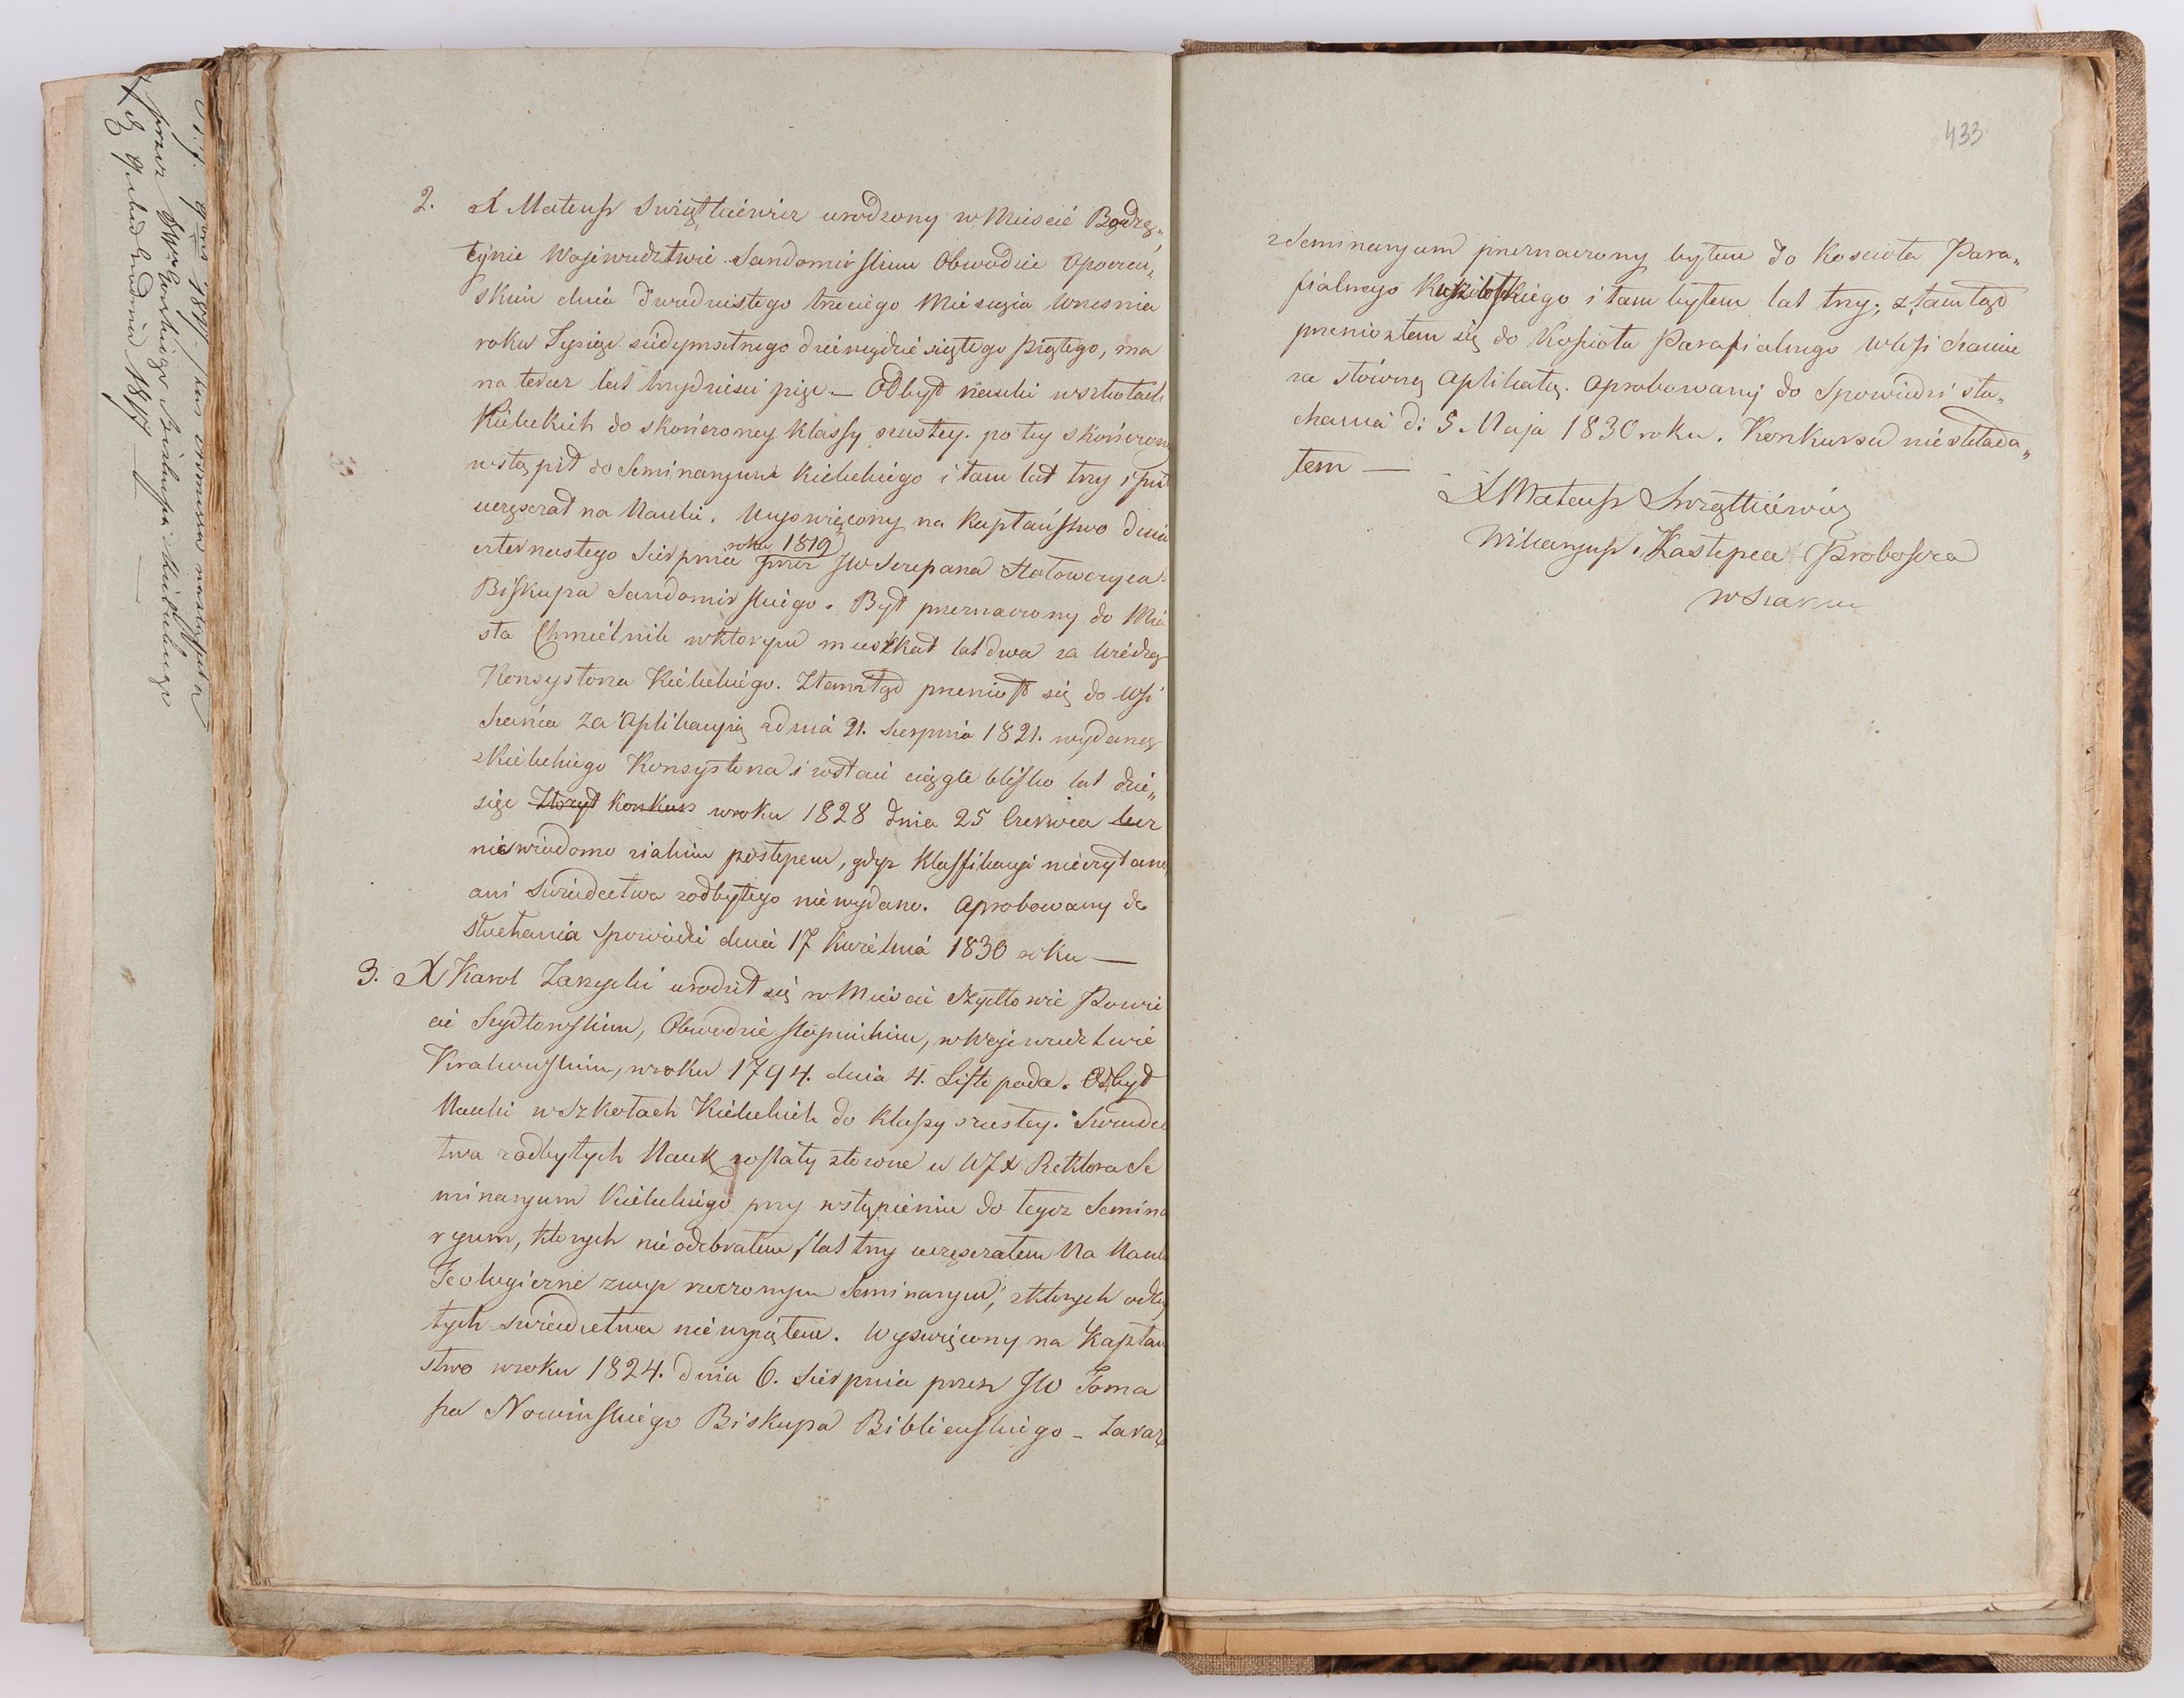 2. X Mateusz Swiątkiewicz urodzony w Mieście Bodzę„
tynie Wojewudztwie Sandomirskim Obwodzie Opoczyn„
skim dnia dwudziestego trzeciego Miesiąca Wrzesnia
roku Tysiąc siedymsetnego dziewiędziesiątego piątego, ma
na teraz lat trzydzieści pięć — Odbył nauki w szkołach
Kieleckich do skończoney klassy szustey. po tey skończony
wstąpił do Seminaryum Kieleckiego i tam lat trzy i puł
uczęszczał na Nauki. Wyswięcony na Kapłaństwo dnia
czternastego Sierpnia roku 1819 przez JW Szczepana Hołowczyca
Biskupa Sandomirskiego. Był przeznaczony do Mia
sta Chmielnik w ktorym mieszkał lat dwa za wiedzą
Konsystorza Kieleckiego. Ztamtąd przeniosł się do Wsi
za Aplikacyią z dnia 21. Sierpnia 1821. wydaną
z Kieleckiego Konsystorza i zostaie ciągle blisko lat dzie„
sięc Złozył Konkurs w roku 1828 dnia 25 Czerwca lecz
niewiadomo z iakim postępem, gdyz Klassifikacyi nieczytano
ani Swiadectwa z odbytego niewydano. Aprobowany do
słuchania Spowiedzi dnia 17 Kwietnia 1830 roku —
3. X Karol urodził się w Mieście Szydłowie Powie
cie Szydłowskim, Obwodzie Stopnickim, w Wojewudztwie
Krakowskim, w roku 1794. dnia 4. Listopada. Odbył
Nauki w Szkołach Kieleckich do klassy szustey. Swiadec
twa z odbytych Nauk zostały złozone u WJX Rektora Se
minaryum Kieleckiego przy wstąpieniu do tegoz Semina
ryum, ktorych nieodebrałem lat trzy uczęszczałem Na Nauki
Teologiczne zwyz rzeczonym Seminaryum, z ktorych odby
tych swiadectwa niewziąłem. Wyswięcony na Kapłań
stwo w roku 1824. dnia 6. Sierpnia przez JW Toma
sza Nowinskiego Biskupa Biblienskiego – Zaraz
433
z Seminaryum przeznaczony byłem do Koscioła Para„
fialnego i tam byłem lat trzy; z tamtąd
przeniosłem się do Kościoła Parafialnego w Wsi
za słowną Aplikatą. Aprobowany do Spowiedzi słu„
chania d: 5. Maja 1830 roku. Konkursu nieskłada„
łem —
X Mateusz Swiątkiewicz
Wikaryusz i Zastępca Proboszcza